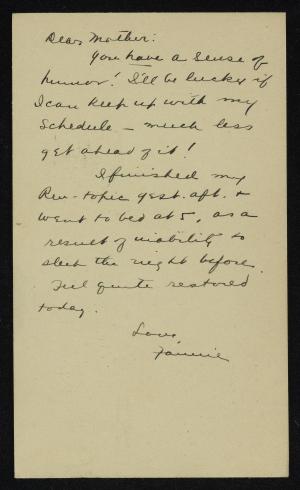 Dear Mother:
You have a sense of
humor! I'll be lucky if
I can keep up with my
schedule — much less
get ahead of it!
I finished my
Rev-topic yest. aft. &
went to bed at 5, as a
result of inability to
sleep the night before.
Feel quite restored
today.
Love,
Fannie